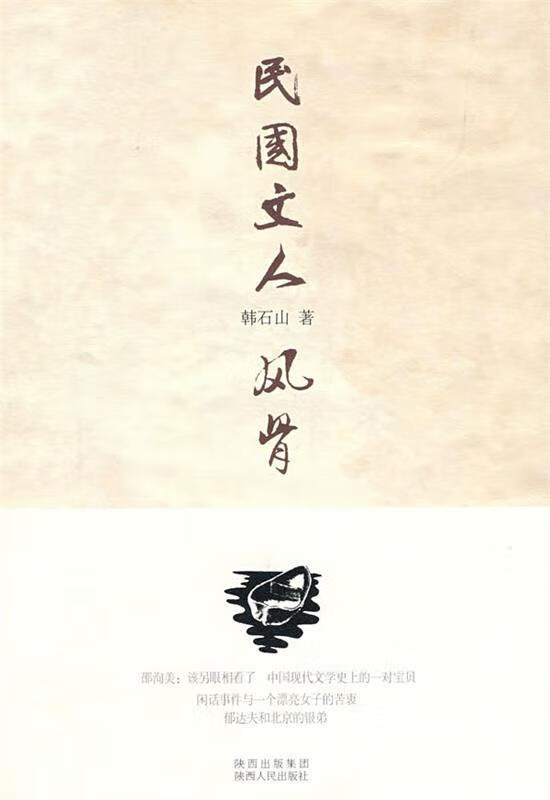 民国文人
韩石山 著
风骨
邵洵美：该另眼相看了 中国现代文学史上的一对宝贝
闲话事件与一个漂亮女子的苦衷
郁达夫和北京的银弟
陕西出版集团
陕西人民出版社